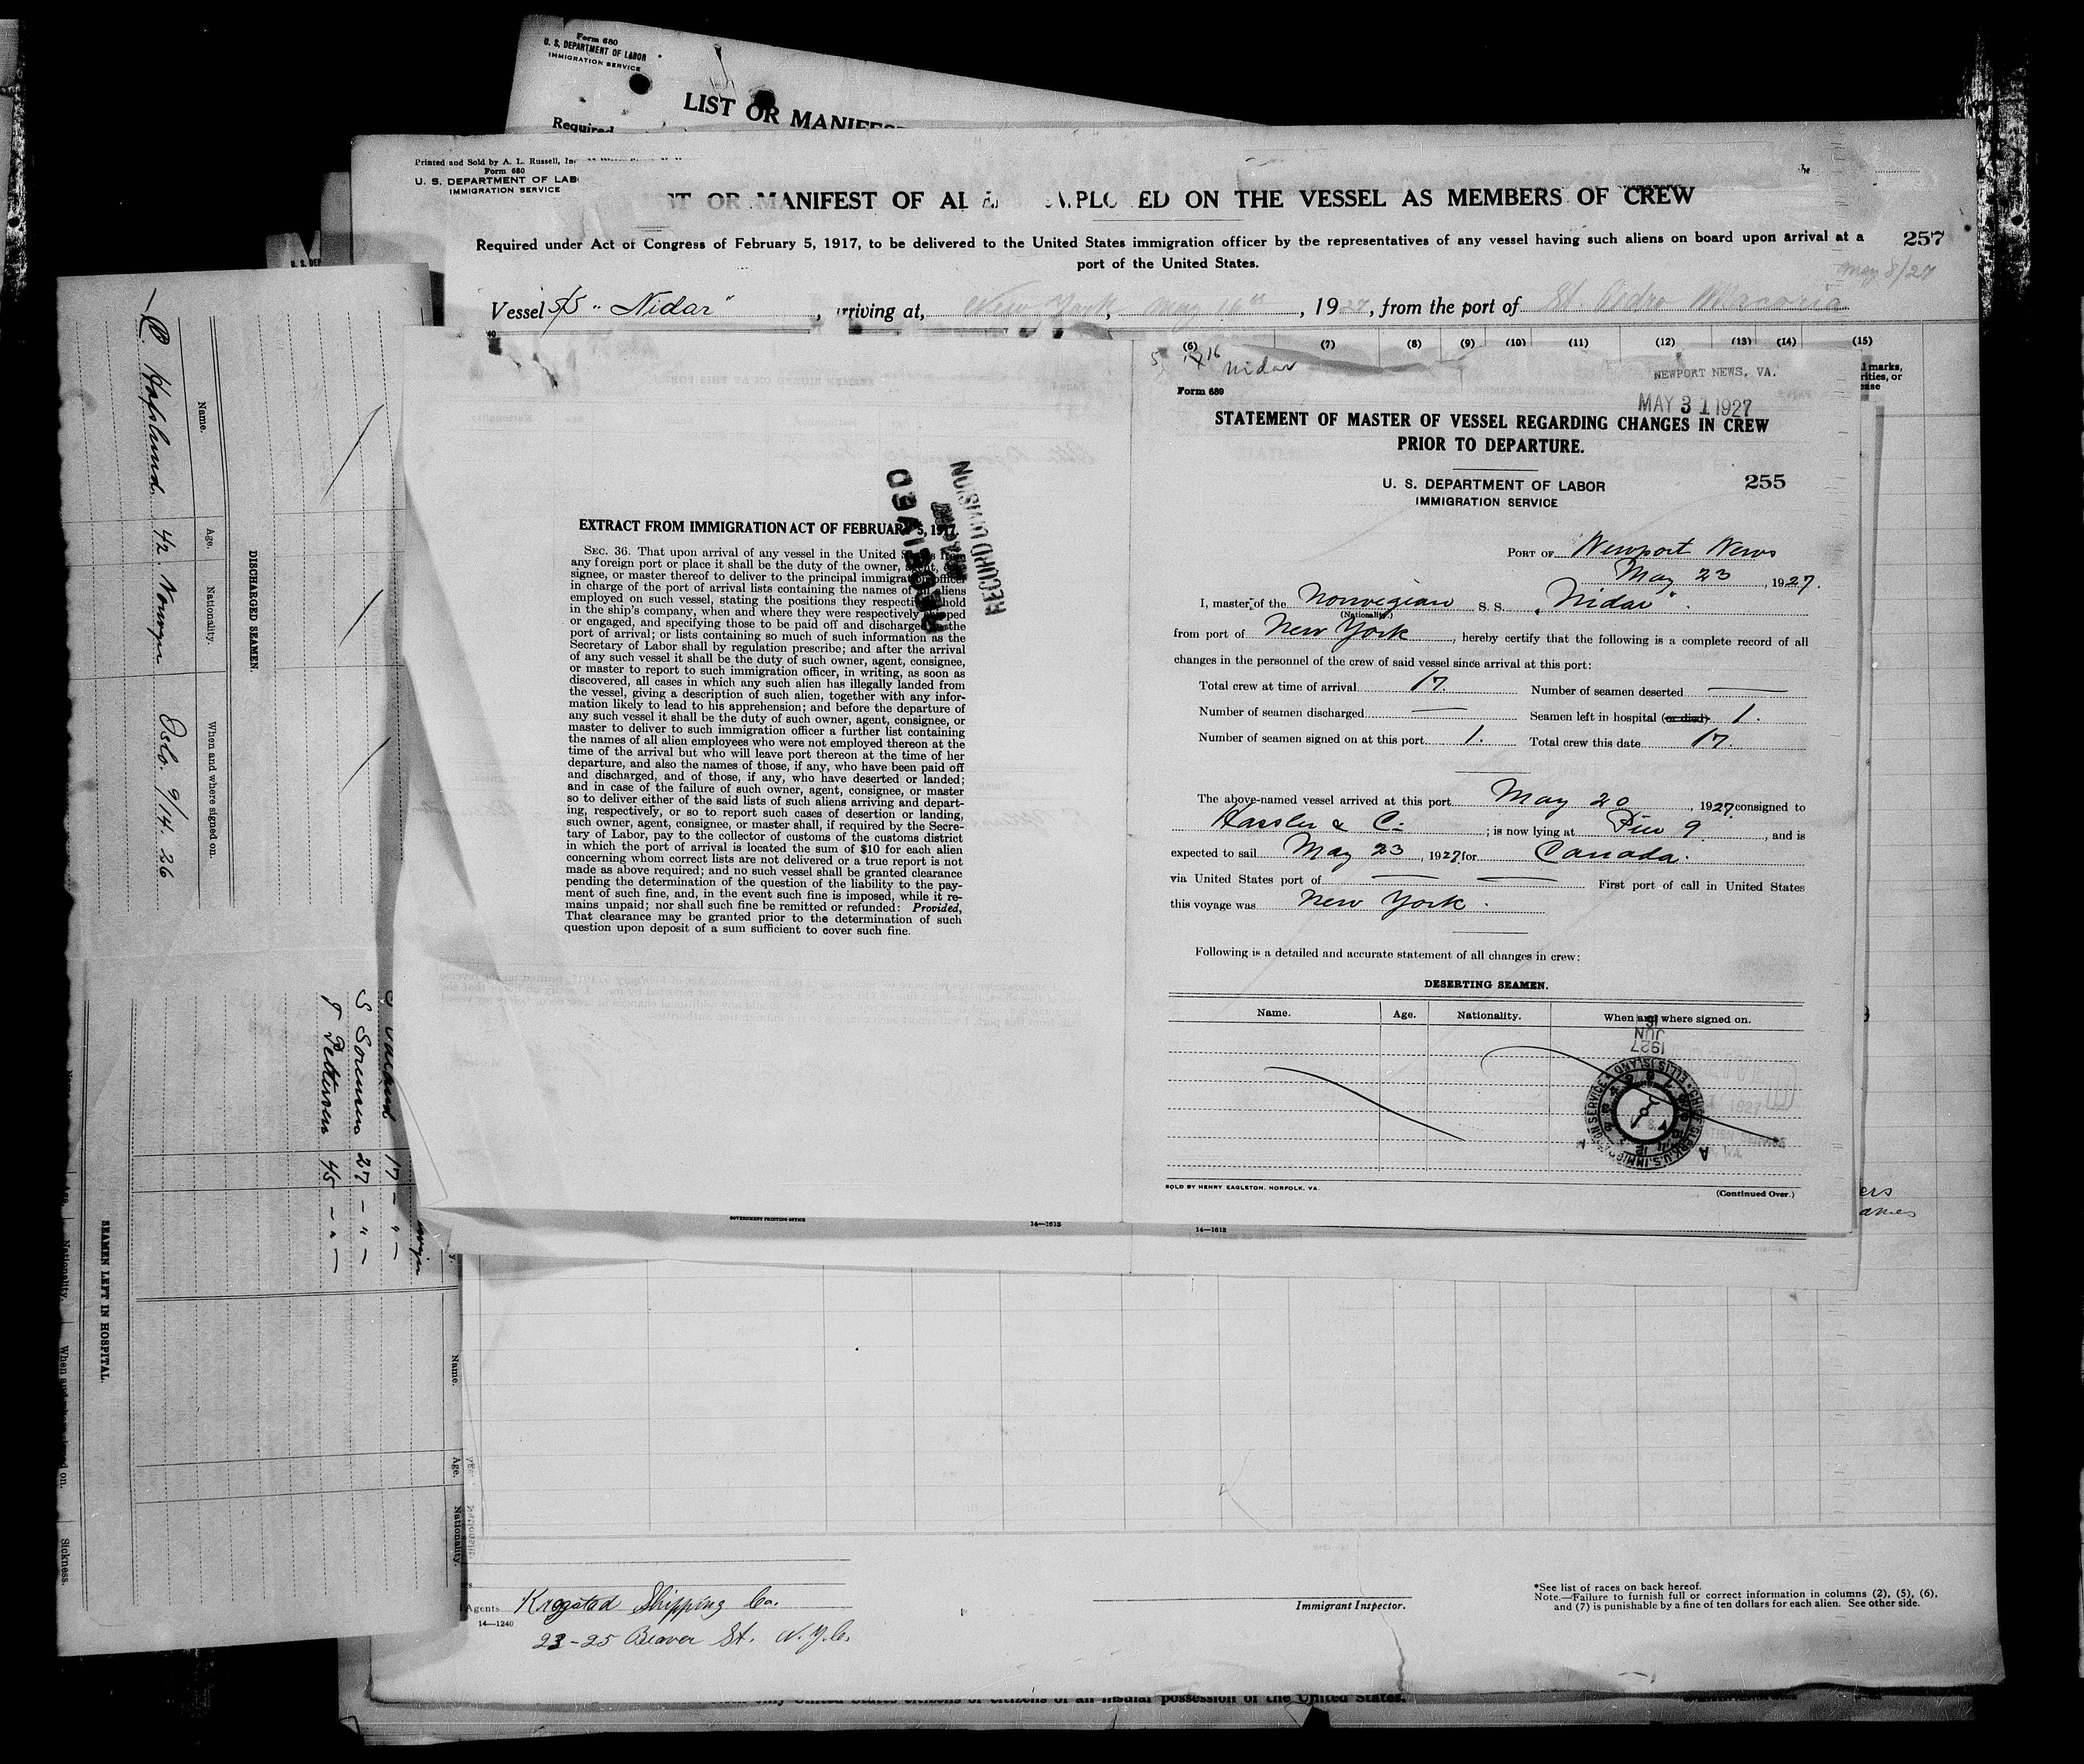 Form 680
U. S. DEPARTMENT OF LABOR
IMMIGRATION SERVICE
LIST OR MANIFES
Required
Printed and Sold by A. L. Russell, In
Form 680
U. S. DEPARTMENT OF LAB
IMMIGRATION SERVICE
OR MANIFEST OF AL ED ON THE VESSEL AS MEMBERS OF CREW
Required under Act of Congress of February 5, 1917, to be delivered to the United States immigration officer by the representatives of any vessel having such aliens on board upon arrival at a
port of the United States.
257
May 8/27
Vessel S/S "Nidar", arriving at, New York, May 16th, 1927, from the port of St. Pedro Macoris
(6) (7) (8) (9) (10) (11) (12) (13) (14) (15)
Nidar
NEWPORT NEWS, VA.
MAY 31 1927
Form 689
STATEMENT OF MASTER OF VESSEL REGARDING CHANGES IN CREW
PRIOR TO DEPARTURE.
U. S. DEPARTMENT OF LABOR
IMMIGRATION SERVICE
255
PORT OF Newport News
May 23, 1927.
I, master of the Norwegian S. S. "Nidar".
(Nationality.)
from port of New York, hereby certify that the following is a complete record of all
changes in the personnel of the crew of said vessel since arrival at this port:
Total crew at time of arrival 17. Number of seamen deserted —
Number of seamen discharged — Seamen left in hospital (or died) 1.
Number of seamen signed on at this port 1. Total crew this date 17.
The above-named vessel arrived at this port May 20, 1927 consigned to
Hasler & Co; is now lying at Pier 9, and is
expected to sail May 23, 1927 for Canada.
via United States port of — — First port of call in United States
this voyage was New York.
Following is a detailed and accurate statement of all changes in crew:
DESERTING SEAMEN.
Name. Age. Nationality. When and where signed on.
JUN
1927
CHIEF CLERK U.S. IMMIGRATION SERVICE ELLIS ISLAND
SOLD BY HENRY EAGLETON, NORFOLK, VA.
(Continued Over.)
14—1613
EXTRACT FROM IMMIGRATION ACT OF FEBRUARY 5, 1917.
SEC. 36. That upon arrival of any vessel in the United States from
any foreign port or place it shall be the duty of the owner, agent, con-
signee, or master thereof to deliver to the principal immigration officer
in charge of the port of arrival lists containing the names of all aliens
employed on such vessel, stating the positions they respectively hold
in the ship's company, when and where they were respectively shipped
or engaged, and specifying those to be paid off and discharged in the
port of arrival; or lists containing so much of such information as the
Secretary of Labor shall by regulation prescribe; and after the arrival
of any such vessel it shall be the duty of such owner, agent, consignee,
or master to report to such immigration officer, in writing, as soon as
discovered, all cases in which any such alien has illegally landed from
the vessel, giving a description of such alien, together with any infor-
mation likely to lead to his apprehension; and before the departure of
any such vessel it shall be the duty of such owner, agent, consignee, or
master to deliver to such immigration officer a further list containing
the names of all alien employees who were not employed thereon at the
time of the arrival but who will leave port thereon at the time of her
departure, and also the names of those, if any, who have been paid off
and discharged, and of those, if any, who have deserted or landed;
and in case of the failure of such owner, agent, consignee, or master
so to deliver either of the said lists of such aliens arriving and depart-
ing, respectively, or so to report such cases of desertion or landing,
such owner, agent, consignee, or master shall, if required by the Secre-
tary of Labor, pay to the collector of customs of the customs district
in which the port of arrival is located the sum of $10 for each alien
concerning whom correct lists are not delivered or a true report is not
made as above required; and no such vessel shall be granted clearance
pending the determination of the question of the liability to the pay-
ment of such fine, and, in the event such fine is imposed, while it re-
mains unpaid; nor shall such fine be remitted or refunded: Provided,
That clearance may be granted prior to the determination of such
question upon deposit of a sum sufficient to cover such fine.
RECEIVED
RECORD DIVISION
GOVERNMENT PRINTING OFFICE
14—1613
DISCHARGED SEAMEN.
Name. Age. Nationality. When and where signed on.
Hafslund 42. Norwegn Oslo. 9/14. 26
S Sorensen 27 — " —
T Pettersen 45 — " —
SEAMEN LEFT IN HOSPITAL.
Name. Age. Nationality. Sickness.
Agents Krogstad Shipping Co.
23-25 Beaver St. N.Y.C.
14—1240
Immigrant Inspector.
*See list of races on back hereof.
Note.—Failure to furnish full or correct information in columns (2), (5), (6),
and (7) is punishable by a fine of ten dollars for each alien. See other side.
only United States citizens or citizens of an insular possession of the United States.